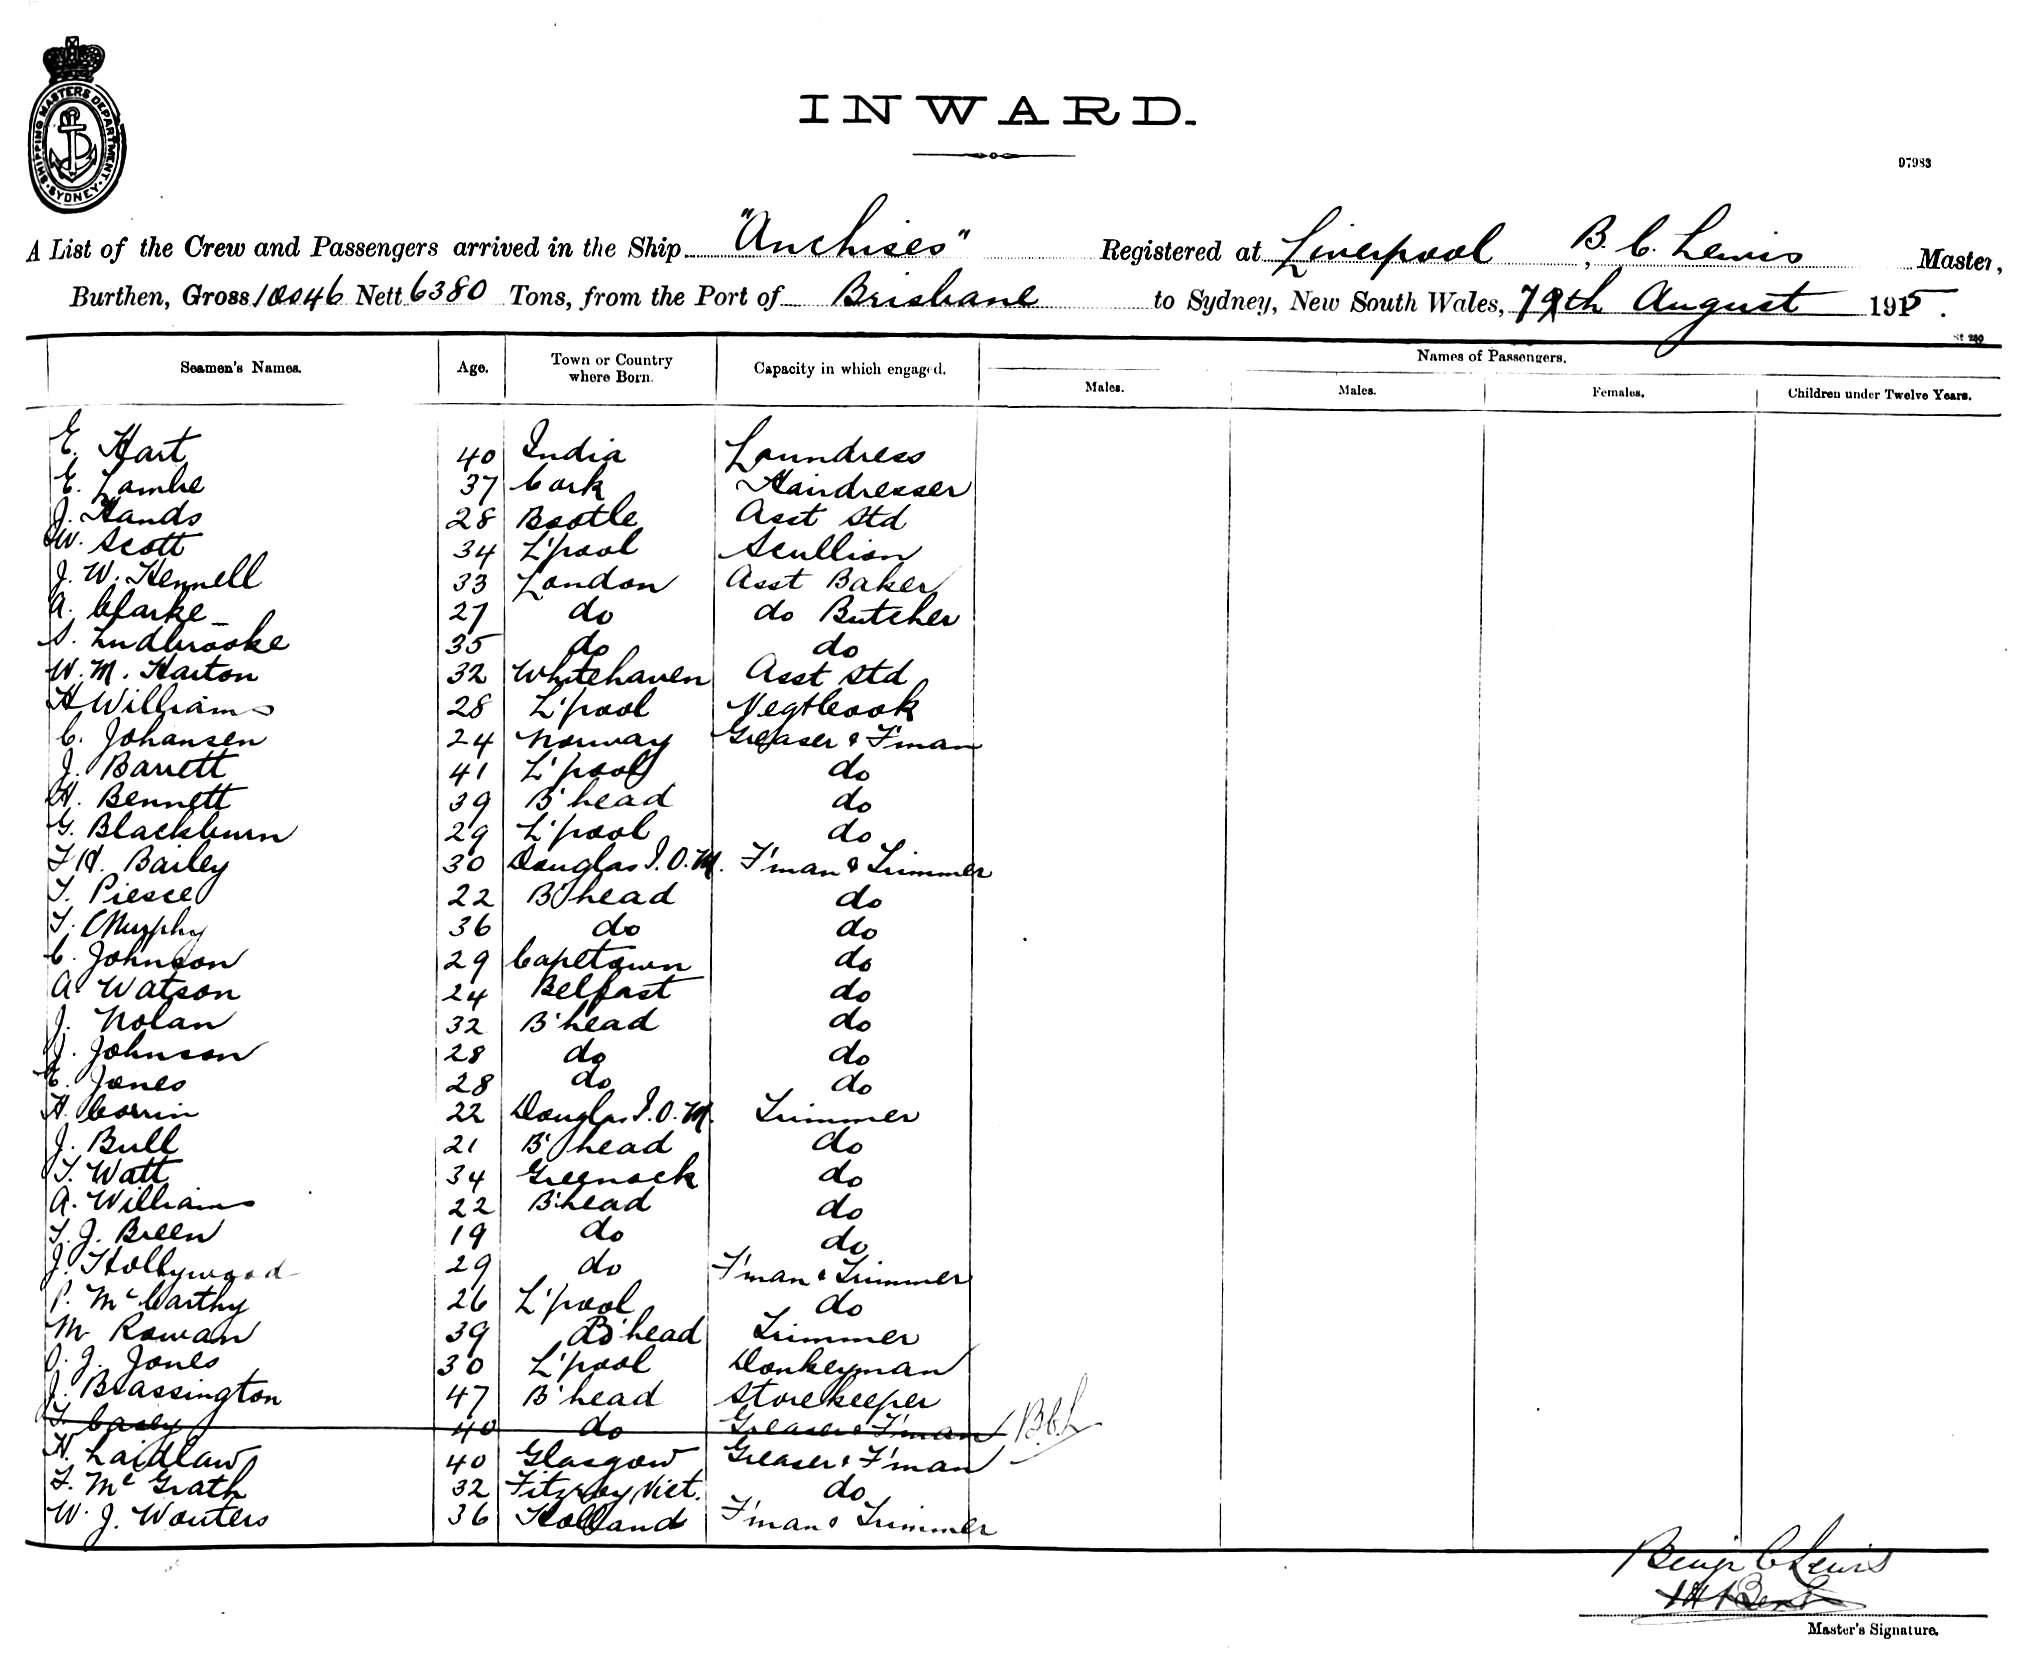 SHIPPING MASTERS DEPARTMENT. SYDNEY.
INWARD.
07983
A List of the Crew and Passengers arrived in the Ship "Anchises" Registered at Liverpool B. C. Lewis Master,
Burthen, Gross 10046 Nett 6380 Tons, from the Port of Brisbane to Sydney, New South Wales, 7th August 1915.
St 230
Seamen's Names. Age. Town or Country where Born. Capacity in which engaged. Names of Passengers.
Males. Males. Females. Children under Twelve Years.
E. Hart 40 India Laundress
E. Lambe 37 Cork Hairdresser
J. Hands 28 Bootle Asst Std
W. Scott 34 L'pool Scullion
J. W. Hennell 33 London Asst Baker
A. Clarke 27 do do Butcher
S. Ludbrooke 35 do do
W. M. Harton 32 Whitehaven Asst Std
H Williams 28 L'pool Vegt Cook
C. Johansen 24 Norway Greaser & F'man
J. Barrett 41 L'pool do
H. Bennett 39 B'head do
G. Blackburn 29 L'pool do
F H. Bailey 30 Douglas I.O.M. F'man & Trimmer
T. Pierce 22 B'head do
T. Murphy 36 do do
C. Johnson 29 Capetown do
A Watson 24 Belfast do
J. Nolan 32 B'head do
J. Johnson 28 do do
E. Jones 28 do do
H. Corrin 22 Douglas I.O.M. Trimmer
J. Bull 21 B'head do
T. Watt 34 Greenock do
A. Williams 22 B'head do
T. J. Breen 19 do do
J. Hollywood 29 do F'man & Trimmer
P. McCarthy 26 L'pool do
M Rowan 39 B'head Trimmer
O. J. Jones 30 L'pool Donkeyman
J. Brassington 47 B'head Storekeeper
T. Casey 40 do Greaser & F'man B.C.L
H. Laidlaw 40 Glasgow Greaser & F'man
F. McGrath 32 Fitzroy Vict. do
W. J. Wouters 36 Holland F'man & Trimmer
Benjn C Lewis
Master's Signature.